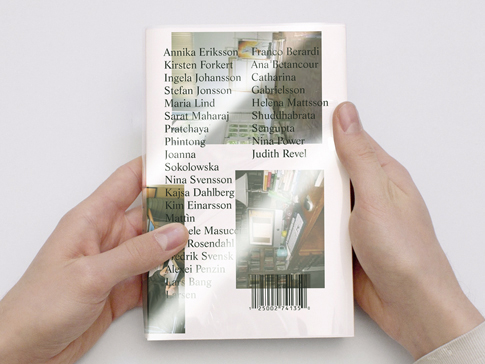 Annika Eriksson
Kirsten Forkert
Ingela Johansson
Stefan Jonsson
Maria Lind
Sarat Maharaj
Pratchaya
Phintong
Joanna
Sokolowska
Nina Svensson
Kajsa Dahlberg
Kim Einarsson
Mattin
ele Masucc
Rosendahl
edrik Svensk
Alexei Penzin
Lars Bang
Larsen
Franco Berardi
Ana Betancour
Catharina
Gabrielsson
Helena Mattsson
Shuddhabrata
Sengupta
Nina Power
Judith Revel
25002 74135